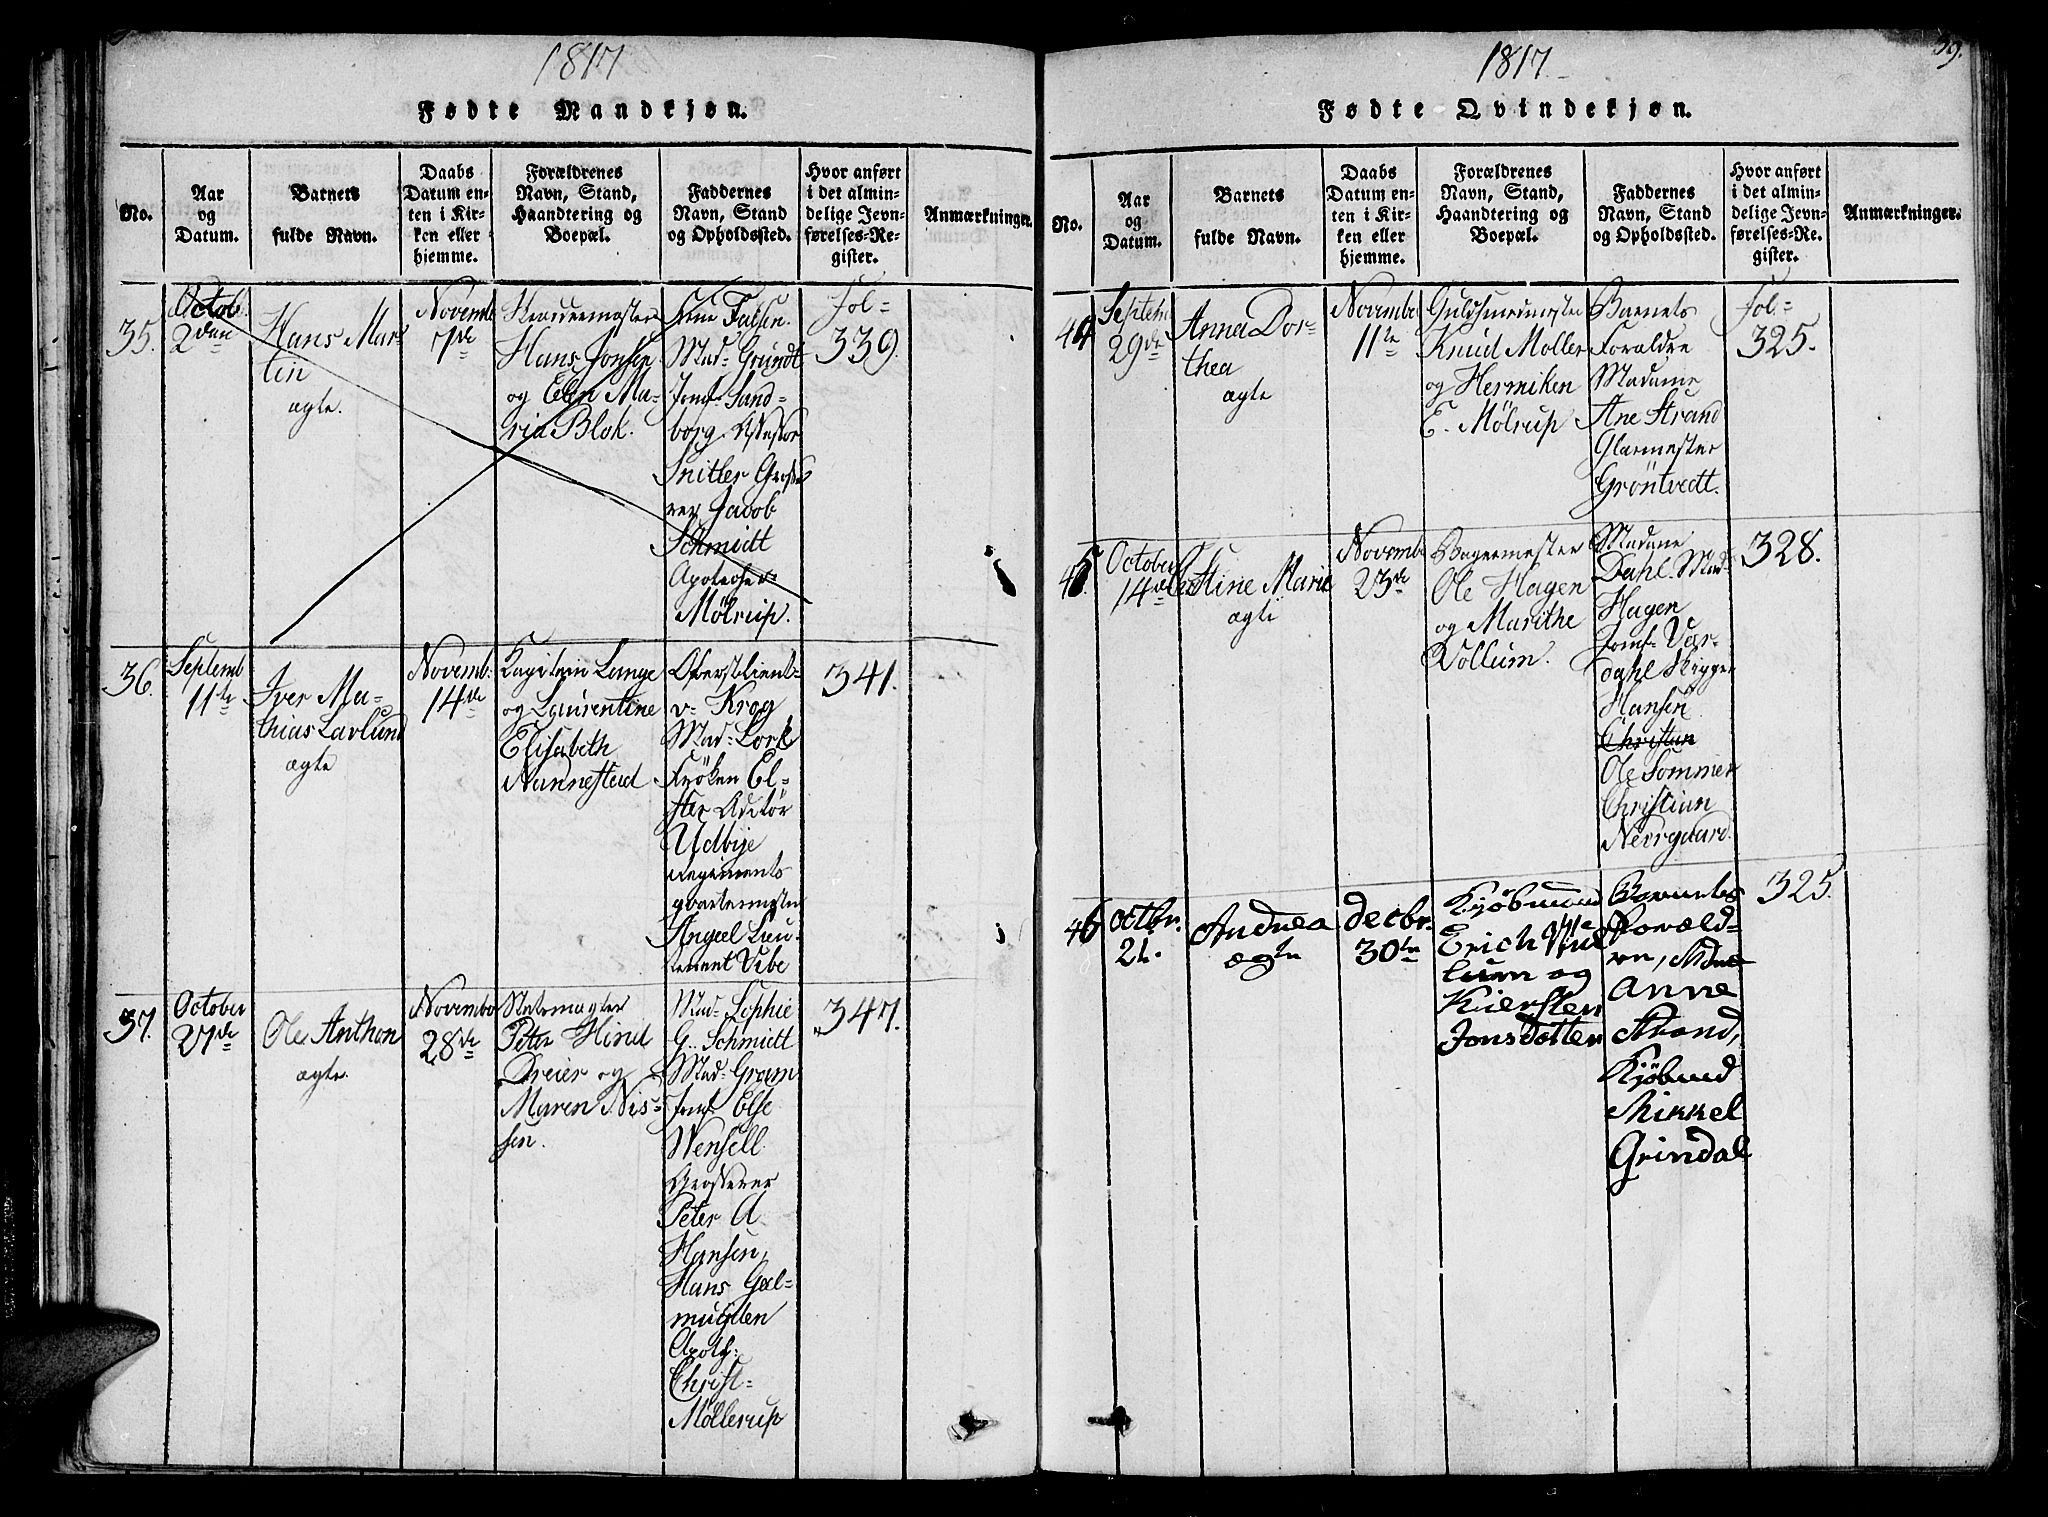 1817
Fødte Mandkjøn.
No.
Aar
og
Datum.
Barnets
fulde Navn.
Daabs
Datum en-
ten i Kir-
ken eller
hjemme.
Forældrenes
Navn, Stand,
Haandtering og
Boepæl.
Faddernes
Navn, Stand
og Opholdssted.
Hvor anført
i det almin-
delige Jevn-
førelses-Re-
gister.
Anmærkninger.
35.
Octob
2den
Hans Mar-
tin
ægte.
Novemb
7de
Hans Jonsen
og Elen Ma-
ria Blok.
Mad- Grundt
Jomf- Sand-
borg. Assessor
Snitler Gross
rer Jacob
Schmidt
Apotheker
Mölrup.
Fol-
339.
36.
Septemb
11te
Iver Ma-
thias Lavlund
ægte
Novemb.
14de
Capitein Lange
og Laurentine
Elisabeth
Nannestad
Oberstlieut-
v- Krog
Mad- Lork
Fröken El-
ster Auditör
Udbije
Regiments
qvartermester
Angeel Lieu-
tenant Vibe
341.
37.
October
27de
Ole Anthon
ægte.
Novembe
28de
Peter Hind
Dreier og
Maren Nis-
sen.
Mad- Sophie
G.. Schmidt
Mad- Gram
Jomf Else
Wensell
Grosserer
Peter A
Hansen,
Hans Gal-
mugden
Apoth-
Christ-
Möllerup
347.
39.
1817.
Fødte Qvindekjøn.
No.
Aar
og
Datum.
Barnets
fulde Navn.
Daabs
Datum en-
ten i Kir-
ken eller
hjemme.
Forældrenes
Navn, Stand,
Haandtering og
Boepæl.
Faddernes
Navn, Stand
og Opholdssted.
Hvor anført
i det almin-
delige Jevn-
førelses-Re-
gister.
Anmærkninger.
44
Septem
29de
Anna Dor-
thea
ægte
Novembe
11te
Guldsmedmester
Knud Moller
og Hermiken
E. Mölrup
Barnets
Forældre
Madame
Ane Strand
Glarmester
Gröntvedt.
Fol-
325.
45.
October
14de
Stine Marie
ægte
Novembe
23de
Bagermester
Ole Hagen
og Marithe
Vollum.
Madame
Dahl. Mad-
Hagen
Jomf- Vær-
dahl Skipper
Hansen
Christian
Ole Sommer
Christian
Neergaard.
328.
46
Octbr.
21.
Andrea
ægte
Decbr.
30te
Kjöbmand
Erich
og
Kiersten
Jonsdotter
Barnets
Foræld-
ren, Mdme
Anne
Strand,
Kjöbmd
Mikkel
Grindal
325.